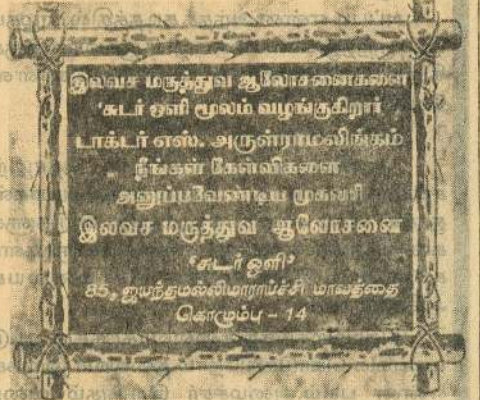 இலவச மருத்துவ ஆலோசனைகளை
'சுடர் ஒளி மூலம் வழங்குகிறார்
டாக்டர் எஸ். அருள்ராமலிங்கம்
நீங்கள் கேள்விகளை
அனுப்பவேண்டிய முகவரி
இலவச மருத்துவ ஆலோசனை
'சுடர் ஒளி'
85, ஜயந்தமல்லிமாராய்ச்சி மாவத்தை
கொழும்பு - 14